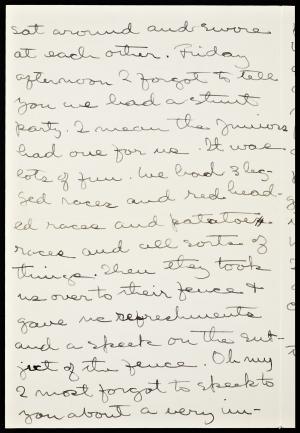 sat around and swore
at each other. Friday
afternoon I forgot to tell
you we had a stunt
party. I mean the Juniors
had one for us. It was
lots of fun. We had 3 leg-
ged races and red head-
ed races and potatoe
races and all sorts of
things. Then they took
us over to their fence &
gave us refreshments
and a speek on the sub-
ject of the fence. Oh my
I most forgot to speek to
you about a very im-